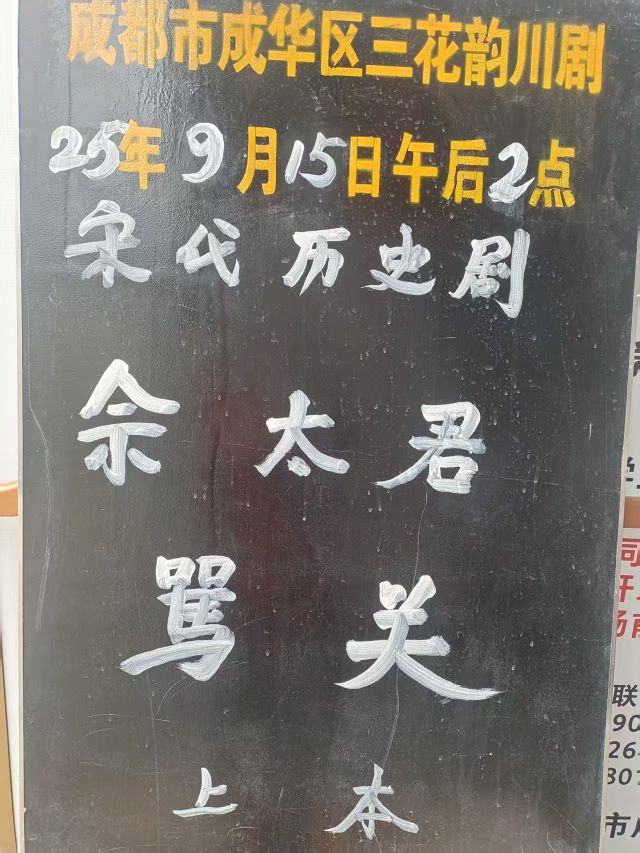 成都市成华区三花韵川剧
25年9月15日午后2点
宋代历史剧
佘太君
骂关
上本
联
90
264
301
市